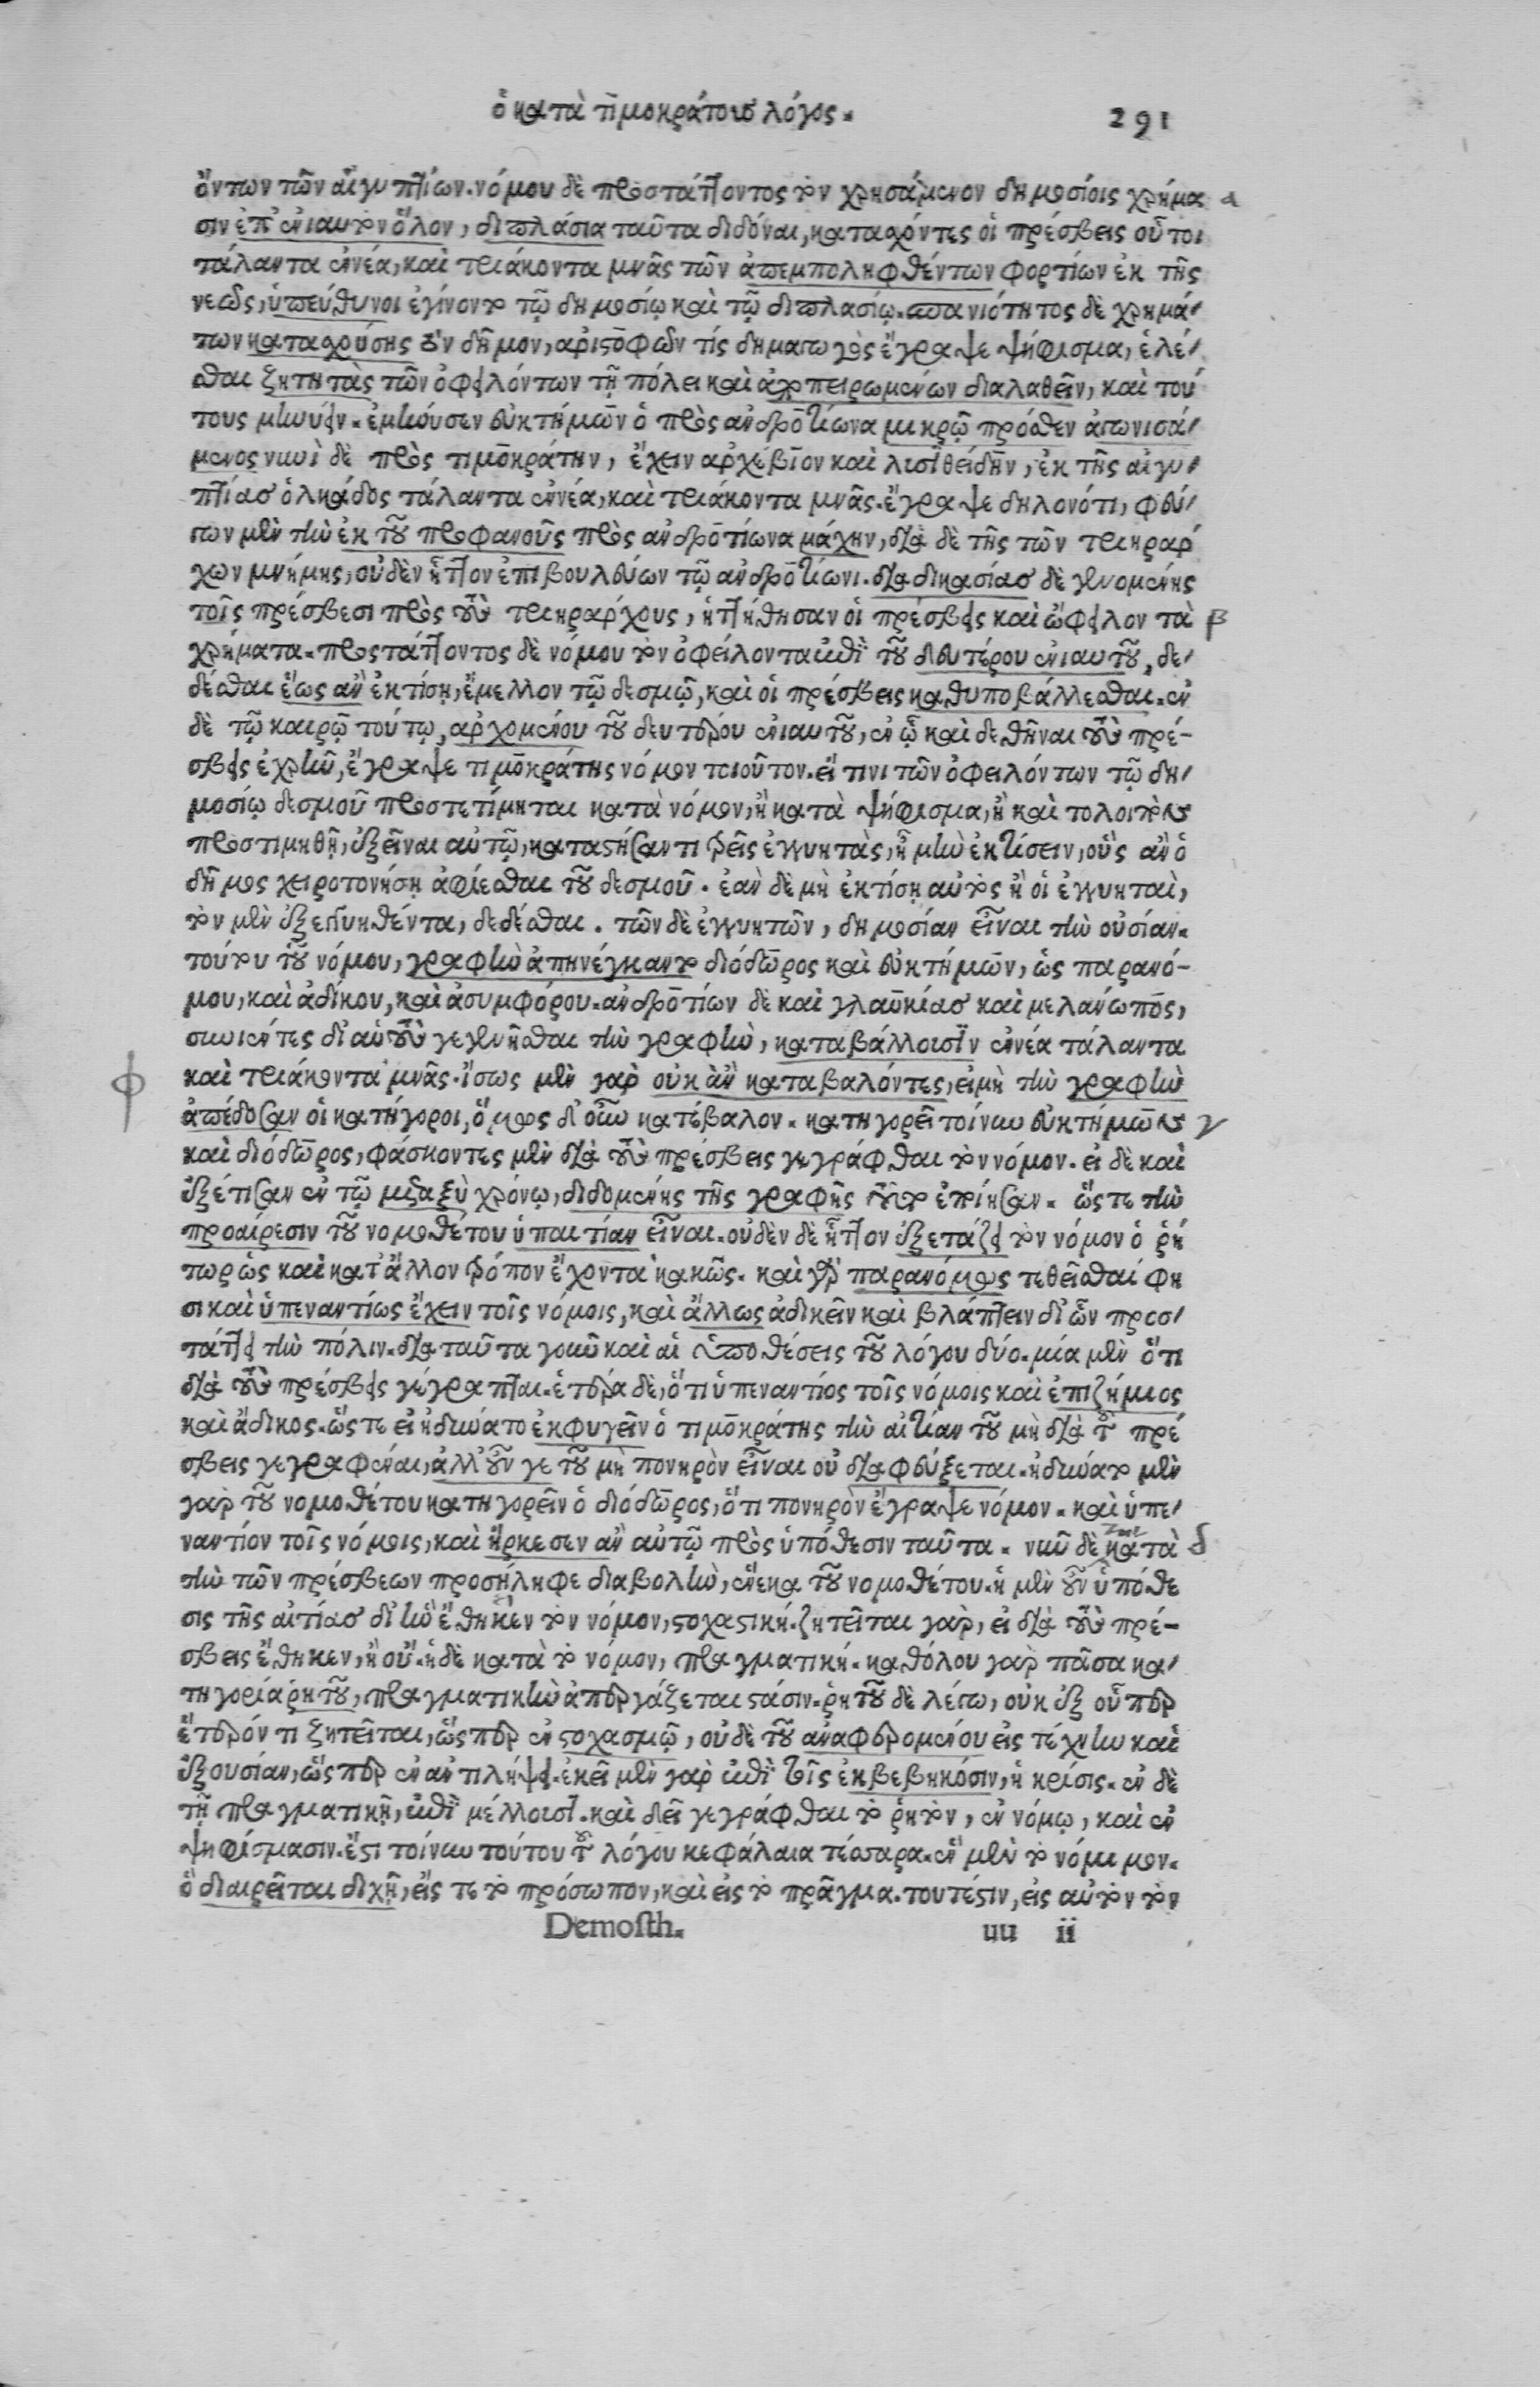 ὁ κατὰ τιμοκράτους λόγος. 291
ὄντων τῶν αἰγυπτίων. νόμου δὲ προστάττοντος τὸν χρησάμενον δημοσίοις χρήμα α
σιν ἐπ' ἐνιαυτὸν ὅλον, διπλάσια ταῦτα διδόναι, κατασχόντες οἱ πρέσβεις οὗτοι
τάλαντα ἐννέα, καὶ τριάκοντα μνᾶς τῶν ἀπεμποληφθέντων φορτίων ἐκ τῆς
νεὼς, ὑπεύθυνοι ἐγίνοντο τῷ δημοσίῳ καὶ τῷ διπλασίῳ. σπανιότητος δὲ χρημά-
των κατασχούσης τὸν δῆμον, ἀριστοφῶν τίς δημαγωγὸς ἔγραψε ψήφισμα, ἑλέ-
σθαι ζητητὰς τῶν ὀφειλόντων τῇ πόλει καὶ ἀποπειρωμένων διαλαθεῖν, καὶ τού
τους μηνύειν. ἐμήνυσεν εὐκτήμων ὁ πρὸς ἀνδροτίωνα μικρῷ πρόσθεν ἀγωνισά-
μενος νυνὶ δὲ πρὸς τιμοκράτην, ἔχειν ἀρχέβιον καὶ λυσιθείδην, ἐκ τῆς αἰγυ-
πτίας ὁλκάδος τάλαντα ἐννέα, καὶ τριάκοντα μνᾶς. ἔγραψε δηλονότι, φεύ-
γων μὲν τὴν ἐκ τοῦ προφανοῦς πρὸς ἀνδροτίωνα μάχην, διὰ δὲ τῆς τῶν τριηράρ
χων μνήμης, οὐδὲν ἧττον ἐπιβουλεύων τῷ ἀνδροτίωνι. διαδικασίας δὲ γενομένης
τοῖς πρέσβεσι πρὸς τοὺς τριηράρχους, ἡττήθησαν οἱ πρέσβεις καὶ ὤφειλον τὰ β
χρήματα. προστάττοντος δὲ νόμου τὸν ὀφείλοντα ἐπὶ τοῦ δευτέρου ἐνιαυτοῦ, δε-
δέσθαι ἕως ἂν ἐκτίσῃ, ἔμελλον τῷ δεσμῷ, καὶ οἱ πρέσβεις καθυποβάλλεσθαι. ἐν
δὲ τῷ καιρῷ τούτῳ, ἀρχομένου τοῦ δευτέρου ἐνιαυτοῦ, ἐν ᾧ καὶ δεθῆναι τοὺς πρέ-
σβεις ἐχρῆν, ἔγραψε τιμοκράτης νόμον τοιοῦτον. εἴ τινι τῶν ὀφειλόντων τῷ δη-
μοσίῳ δεσμοῦ προστετίμηται κατὰ νόμον, ἢ κατὰ ψήφισμα, ἢ καὶ τολοιπὸν
προστιμηθῇ, ἐξεῖναι αὐτῷ, καταστήσαντι τρεῖς ἐγγυητὰς, ἦ μὴν ἐκτίσειν, οὓς ἂν ὁ
δῆμος χειροτονήσῃ ἀφίεσθαι τοῦ δεσμοῦ. ἐὰν δὲ μὴ ἐκτίσῃ αὐτὸς ἢ οἱ ἐγγυηταὶ,
τὸν μὲν ἐξεγγυηθέντα, δεδέσθαι. τῶν δὲ ἐγγυητῶν, δημοσίαν εἶναι τὴν οὐσίαν.
τούτου τοῦ νόμου, γραφὴν ἀπηνέγκαντο διόδωρος καὶ εὐκτήμων, ὡς παρανό-
μου, καὶ ἀδίκου, καὶ ἀσυμφόρου. ἀνδροτίων δὲ καὶ γλαυκίας καὶ μελάνωπος,
συνιέντες δι' αὑτοὺς γεγενῆσθαι τὴν γραφὴν, καταβάλλουσιν ἐννέα τάλαντα
φ καὶ τριάκοντα μνᾶς. ἴσως μὲν γὰρ οὐκ ἂν καταβαλόντες, εἰ μὴ τὴν γραφὴν
ἀπέδοσαν οἱ κατήγοροι, ὅμως δ' οὖν κατέβαλον. κατηγορεῖ τοίνυν εὐκτήμων γ
καὶ διόδωρος, φάσκοντες μὲν διὰ τοὺς πρέσβεις γεγράφθαι τὸν νόμον. εἰ δὲ καὶ
ἐξέτισαν ἐν τῷ μεταξὺ χρόνῳ, διδομένης τῆς γραφῆς τοῦτο ἐποίησαν. ὥστε τὴν
προαίρεσιν τοῦ νομοθέτου ὑπαιτίαν εἶναι. οὐδὲν δὲ ἧττον ἐξετάζει τὸν νόμον ὁ ῥή
τωρ ὡς καὶ κατ' ἄλλον τρόπον ἔχοντα κακῶς. καὶ γὰρ παρανόμως τεθεῖσθαί φη
σι καὶ ὑπεναντίως ἔχειν τοῖς νόμοις, καὶ ἄλλως ἀδικεῖν καὶ βλάπτειν δι' ὧν προσ-
τάττει τὴν πόλιν. διὰ ταῦτα γοῦν καὶ αἱ ὑποθέσεις τοῦ λόγου δύο. μία μὲν ὅτι
διὰ τοὺς πρέσβεις γέγραπται. ἑτέρα δὲ, ὅτι ὑπεναντίος τοῖς νόμοις καὶ ἐπιζήμιος
καὶ ἄδικος. ὥστε εἰ ἠδύνατο ἐκφυγεῖν ὁ τιμοκράτης τὴν αἰτίαν τοῦ μὴ διὰ τοὺς πρέ
σβεις γεγραφέναι, ἀλλ' οὖν γε τοῦ μὴ πονηρὸν εἶναι οὐ διαφεύξεται. ἠδύνατο μὲν
γὰρ τοῦ νομοθέτου κατηγορεῖν ὁ διόδωρος, ὅτι πονηρὸν ἔγραψε νόμον. καὶ ὑπε-
ναντίον τοῖς νόμοις, καὶ ἤρκεσεν ἂν αὐτῷ πρὸς ὑπόθεσιν ταῦτα. νῦν δὲ κατὰ δ
τὴν τῶν πρέσβεων προσήληφε διαβολὴν, ἕνεκα τοῦ νομοθέτου. ἡ μὲν οὖν ὑπόθε
σις τῆς αἰτίας δι' ἣν ἔθηκεν τὸν νόμον, στοχαστική. ζητεῖται γὰρ, εἰ διὰ τοὺς πρέ-
σβεις ἔθηκεν, ἢ οὔ. ἡ δὲ κατὰ τὸ νόμον, πραγματική. καθόλου γὰρ πᾶσα κα-
τηγορία ῥητοῦ, πραγματικὴν ἀπεργάζεται στάσιν. ῥητοῦ δὲ λέγω, οὐκ ἐξ οὗπερ
ἕτερόν τι ζητεῖται, ὥσπερ ἐν στοχασμῷ, οὐδὲ τοῦ ἀναφερομένου εἰς τέχνην καὶ
ἐξουσίαν, ὥσπερ ἐν ἀντιλήψει. ἐκεῖ μὲν γὰρ ἐπὶ τοῖς ἐκβεβηκόσιν, ἡ κρίσις. ἐν δὲ
τῇ πραγματικῇ, ἐπὶ μέλλουσι. καὶ δεῖ γεγράφθαι τὸ ῥητὸν, ἐν νόμῳ, καὶ ἐν
ψηφίσμασιν. ἔστι τοίνυν τούτου τοῦ λόγου κεφάλαια τέσσαρα. ἓν μὲν τὸ νόμιμον.
ὃ διαιρεῖται διχῇ, εἴς τε τὸ πρόσωπον, καὶ εἰς τὸ πρᾶγμα. τουτέστιν, εἰς αὐτὸν τὸν
Demosth. uu ii